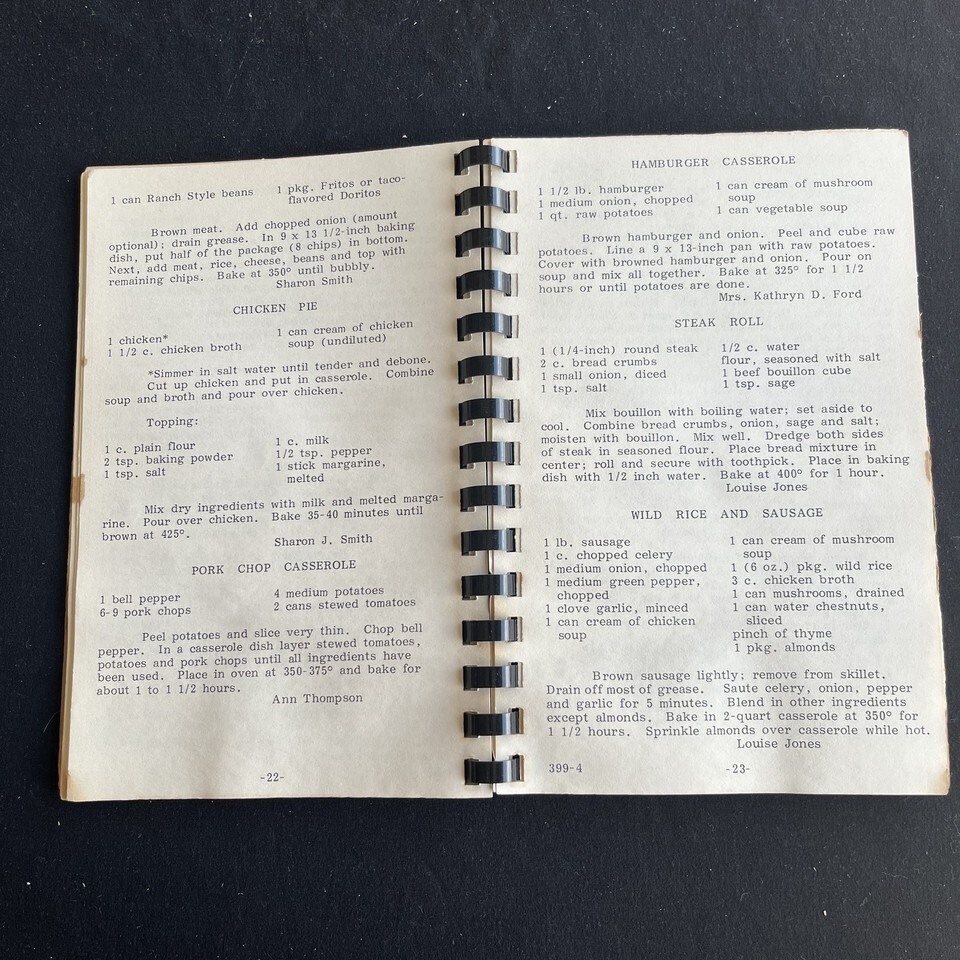 1 can Ranch Style beans 1 pkg. Fritos or taco-
flavored Doritos
Brown meat. Add chopped onion (amount
optional); drain grease. In 9 x 13 1/2-inch baking
dish, put half of the package (8 chips) in bottom.
Next, add meat, rice, cheese, beans and top with
remaining chips. Bake at 350° until bubbly.
Sharon Smith
CHICKEN PIE
1 chicken* 1 can cream of chicken
1 1/2 c. chicken broth soup (undiluted)
*Simmer in salt water until tender and debone.
Cut up chicken and put in casserole. Combine
soup and broth and pour over chicken.
Topping:
1 c. plain flour 1 c. milk
2 tsp. baking powder 1/2 tsp. pepper
1 tsp. salt 1 stick margarine,
melted
Mix dry ingredients with milk and melted marga-
rine. Pour over chicken. Bake 35-40 minutes until
brown at 425°.
Sharon J. Smith
PORK CHOP CASSEROLE
1 bell pepper 4 medium potatoes
6-9 pork chops 2 cans stewed tomatoes
Peel potatoes and slice very thin. Chop bell
pepper. In a casserole dish layer stewed tomatoes,
potatoes and pork chops until all ingredients have
been used. Place in oven at 350-375° and bake for
about 1 to 1 1/2 hours.
Ann Thompson
-22-
HAMBURGER CASSEROLE
1 1/2 lb. hamburger 1 can cream of mushroom
1 medium onion, chopped soup
1 qt. raw potatoes 1 can vegetable soup
Brown hamburger and onion. Peel and cube raw
potatoes. Line a 9 x 13-inch pan with raw potatoes.
Cover with browned hamburger and onion. Pour on
soup and mix all together. Bake at 325° for 1 1/2
hours or until potatoes are done.
Mrs. Kathryn D. Ford
STEAK ROLL
1 (1/4-inch) round steak 1/2 c. water
2 c. bread crumbs flour, seasoned with salt
1 small onion, diced 1 beef bouillon cube
1 tsp. salt 1 tsp. sage
Mix bouillon with boiling water; set aside to
cool. Combine bread crumbs, onion, sage and salt;
moisten with bouillon. Mix well. Dredge both sides
of steak in seasoned flour. Place bread mixture in
center; roll and secure with toothpick. Place in baking
dish with 1/2 inch water. Bake at 400° for 1 hour.
Louise Jones
WILD RICE AND SAUSAGE
1 lb. sausage 1 can cream of mushroom
1 c. chopped celery soup
1 medium onion, chopped 1 (6 oz.) pkg. wild rice
1 medium green pepper, 3 c. chicken broth
chopped 1 can mushrooms, drained
1 clove garlic, minced 1 can water chestnuts,
1 can cream of chicken sliced
soup pinch of thyme
1 pkg. almonds
Brown sausage lightly; remove from skillet.
Drain off most of grease. Saute celery, onion, pepper
and garlic for 5 minutes. Blend in other ingredients
except almonds. Bake in 2-quart casserole at 350° for
1 1/2 hours. Sprinkle almonds over casserole while hot.
Louise Jones
399-4 -23-